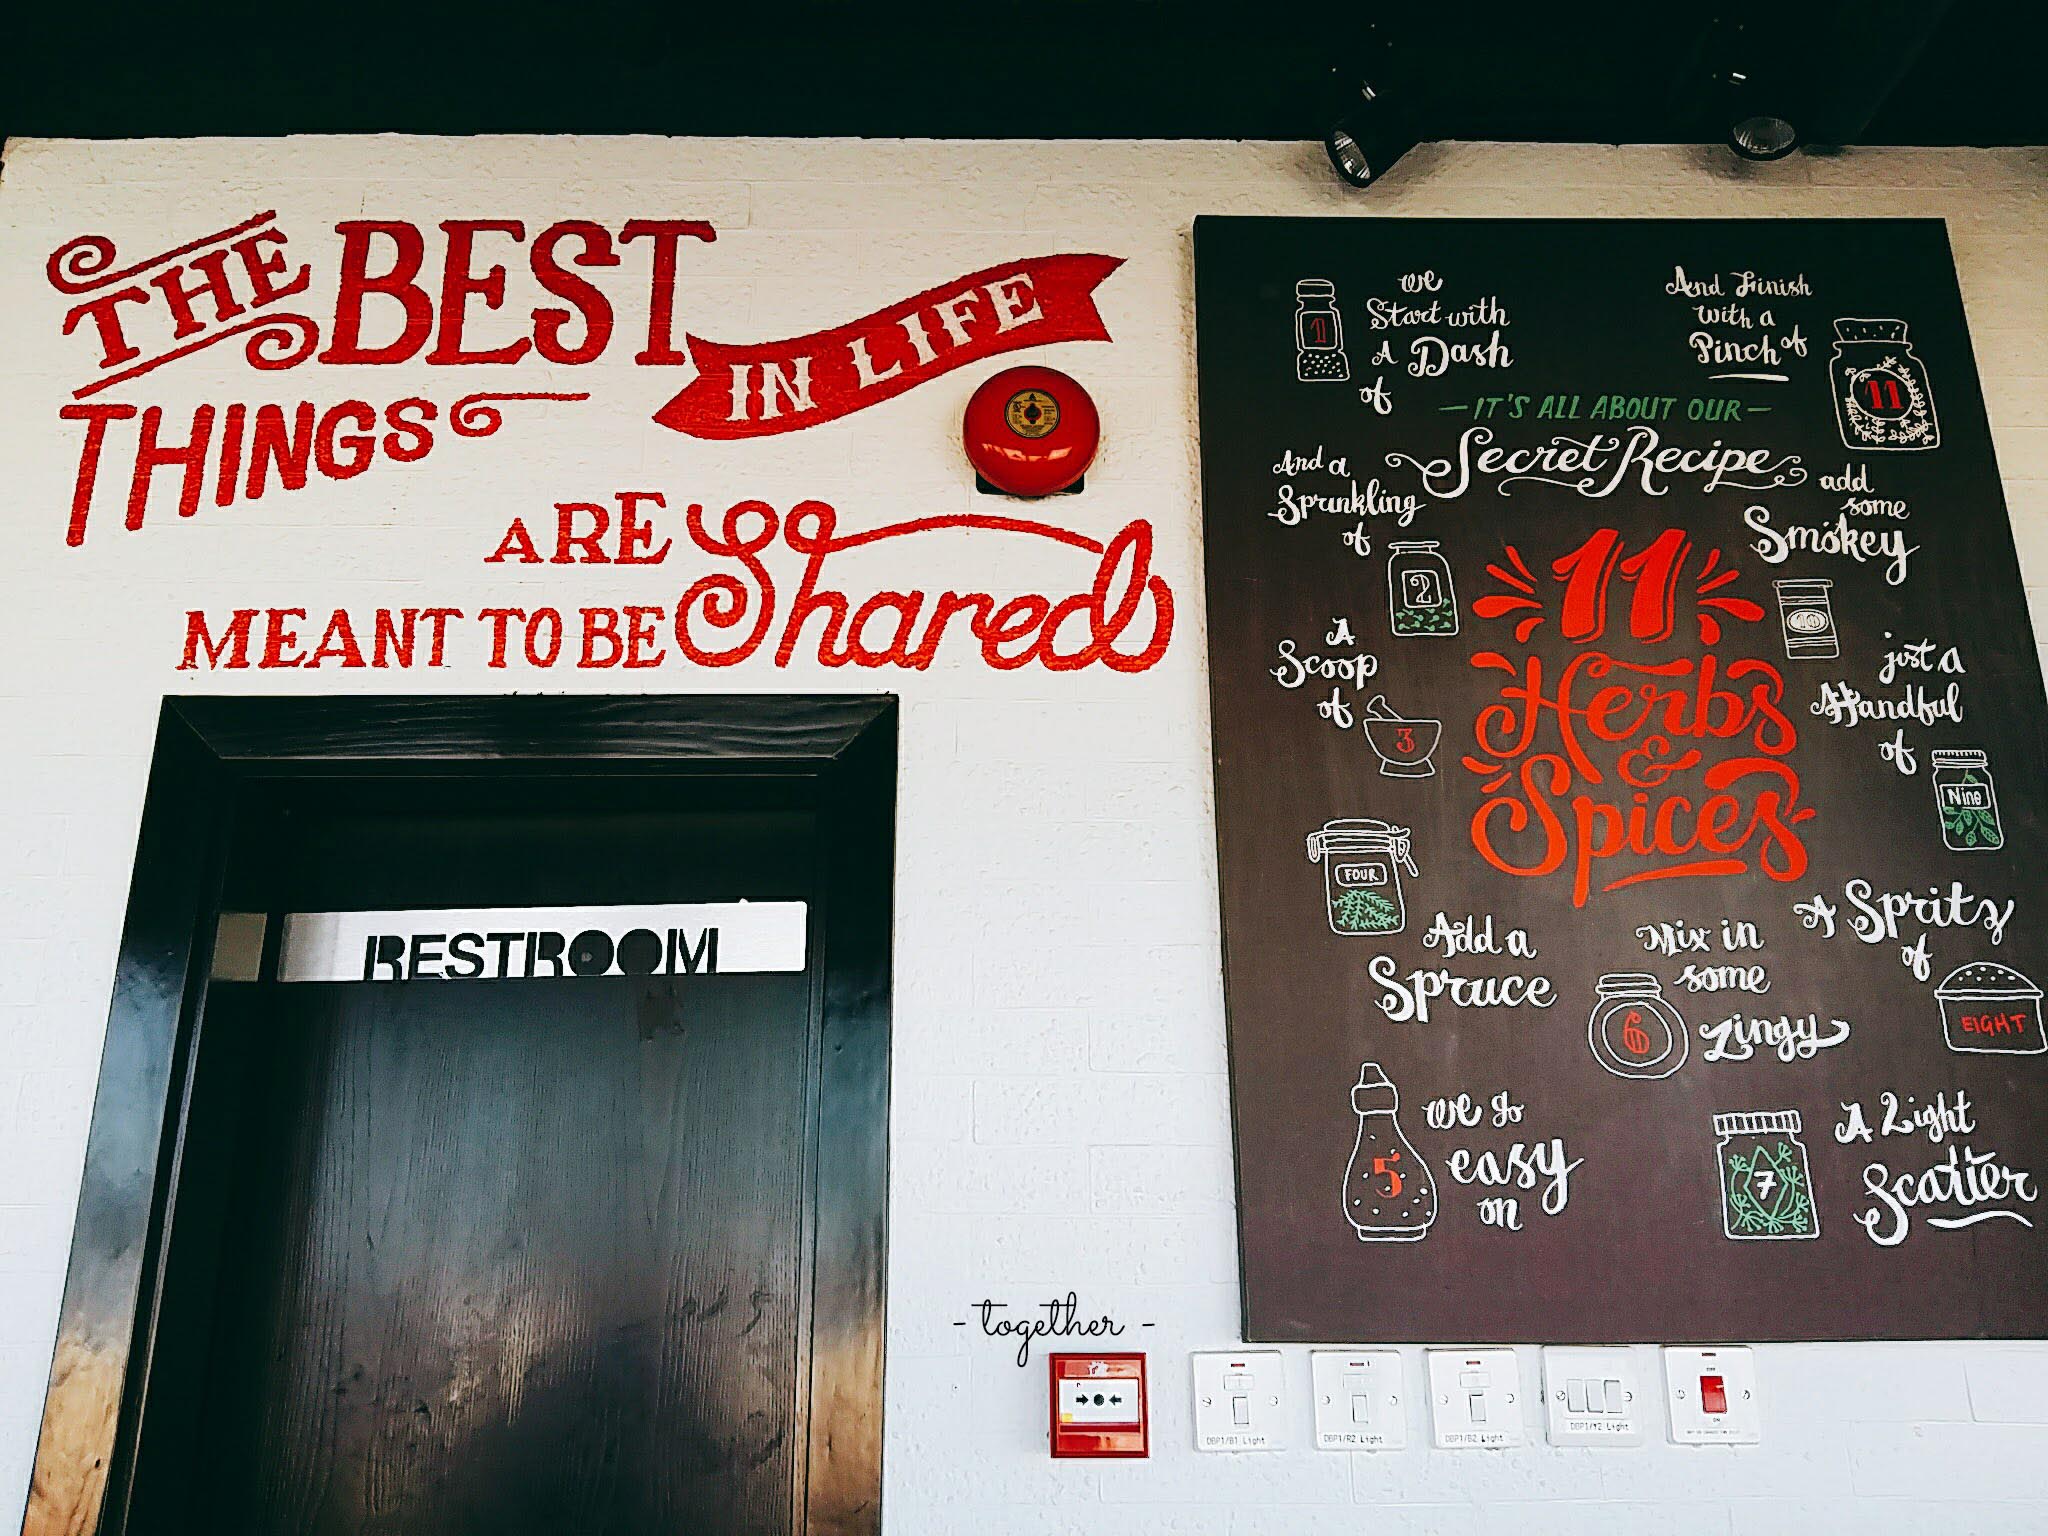 THE BEST
IN LIFE
THINGS
ARE Shared
MEANT TO BE
RESTROOM
- together -
1
We
Start with
A Dash
of
And Finish
with a
Pinch of
11
- IT'S ALL ABOUT OUR -
Secret Recipe
11
Herbs
&
Spices
And a
Sprinkling
of
2
A
Scoop
of
3
FOUR
Add a
Spruce
5
we go
easy
on
6
Mix in
some
zingy
7
A Light
Scatter
A Spritz
of
EIGHT
just a
Handful
of
Nine
add
some
Smokey
10
DBP1/B1 Light
DBP1/R2 Light
DBP1/B2 Light
DBP1/Y2 Light
OFF
ON